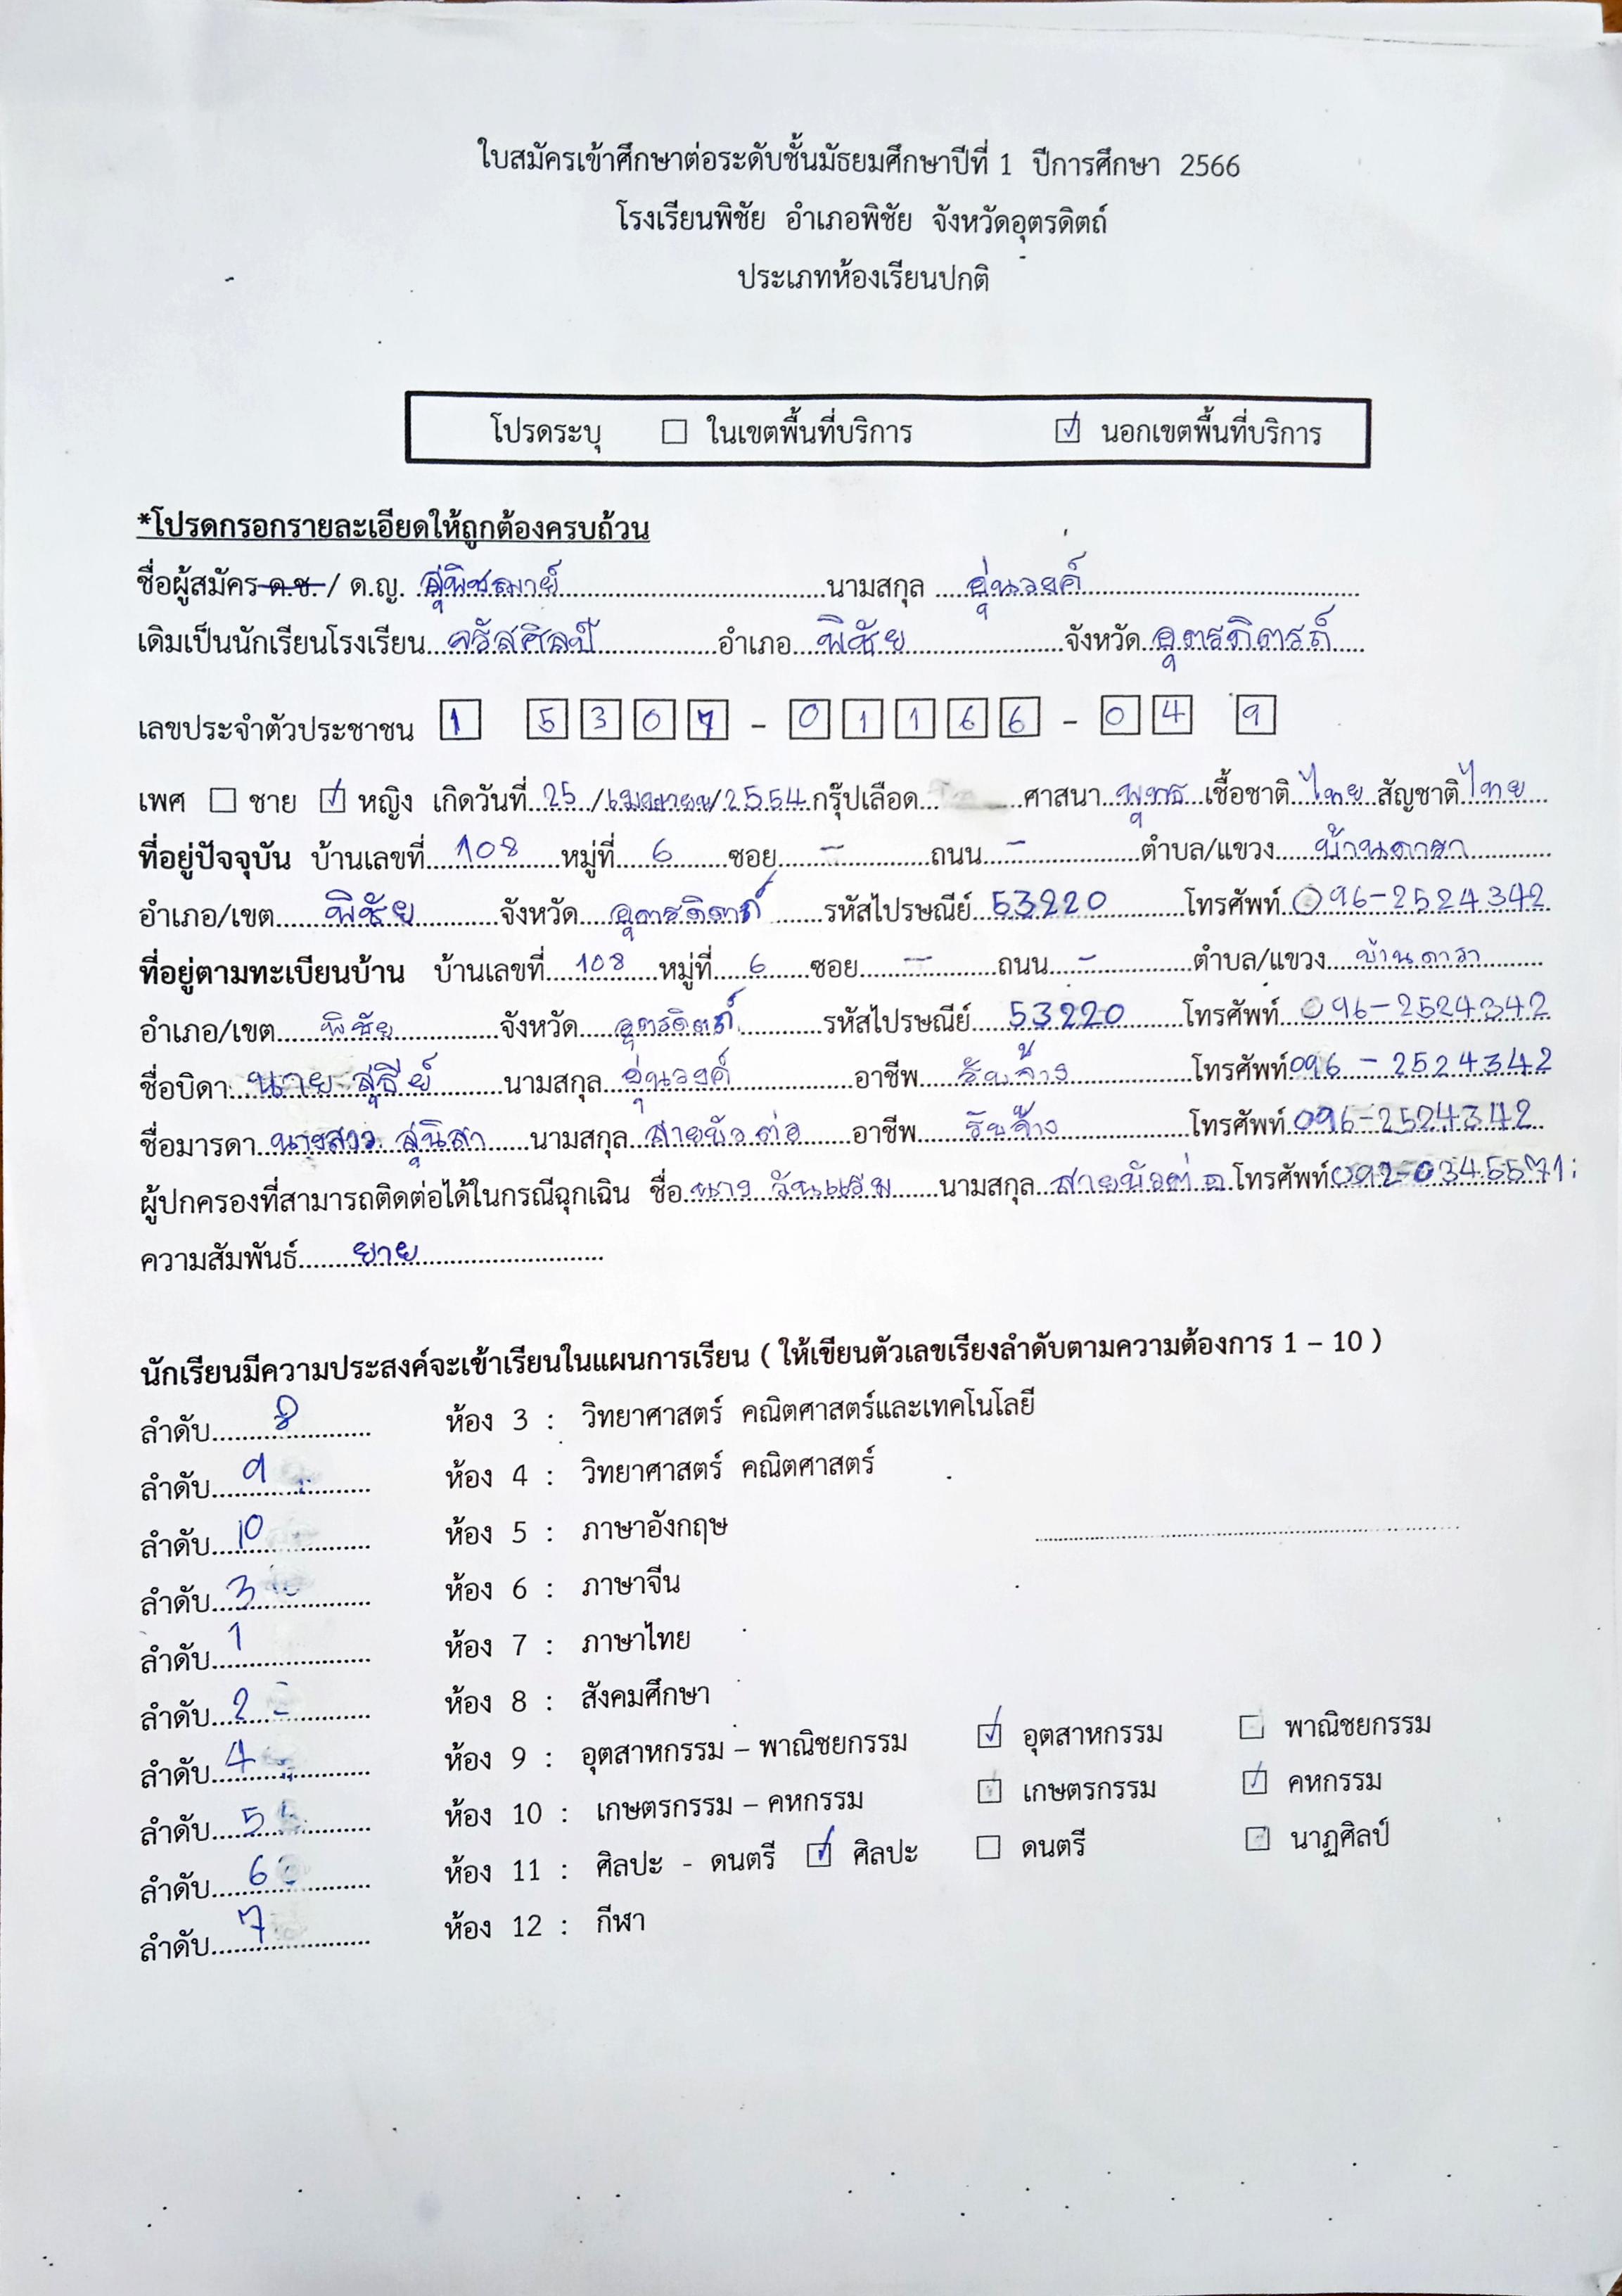 ใบสมัครเข้าศึกษาต่อระดับชั้นมัธยมศึกษาปีที่ 1 ปีการศึกษา 2566
โรงเรียนพิชัย อำเภอพิชัย จังหวัดอุตรดิตถ์
ประเภทห้องเรียนปกติ
โปรดระบุ ☐ ในเขตพื้นที่บริการ ☑ นอกเขตพื้นที่บริการ
*โปรดกรอกรายละเอียดให้ถูกต้องครบถ้วน
ชื่อผู้สมัคร ด.ช. / ด.ญ. สุพิชฌาย์ นามสกุล อุ่นวงค์
เดิมเป็นนักเรียนโรงเรียน จรัสศิลป์ อำเภอ พิชัย จังหวัด อุตรดิตรถ์
เลขประจำตัวประชาชน 1 5307 - 01166 - 04 9
เพศ ☐ ชาย ☑ หญิง เกิดวันที่ 25 / เมษายน / 2554 กรุ๊ปเลือด ศาสนา พุทธ เชื้อชาติ ไทย สัญชาติ ไทย
ที่อยู่ปัจจุบัน บ้านเลขที่ 108 หมู่ที่ 6 ซอย - ถนน - ตำบล/แขวง บ้านดารา
อำเภอ/เขต พิชัย จังหวัด อุตรดิตถ์ รหัสไปรษณีย์ 53220 โทรศัพท์ 096-2524342
ที่อยู่ตามทะเบียนบ้าน บ้านเลขที่ 108 หมู่ที่ 6 ซอย - ถนน - ตำบล/แขวง บ้านดารา
อำเภอ/เขต พิชัย จังหวัด อุตรดิตถ์ รหัสไปรษณีย์ 53220 โทรศัพท์ 096-2524342
ชื่อบิดา นาย สุธีย์ นามสกุล อุ่นวงค์ อาชีพ รับจ้าง โทรศัพท์ 096-2524342
ชื่อมารดา นางสาว สุนิสา นามสกุล สายบัวต่อ อาชีพ รับจ้าง โทรศัพท์ 096-2524342
ผู้ปกครองที่สามารถติดต่อได้ในกรณีฉุกเฉิน ชื่อ นาง วันแรม นามสกุล สายบัวต่อ โทรศัพท์ 092-0345571
ความสัมพันธ์ ยาย
นักเรียนมีความประสงค์จะเข้าเรียนในแผนการเรียน ( ให้เขียนตัวเลขเรียงลำดับตามความต้องการ 1 – 10 )
ลำดับ 8 ห้อง 3 : วิทยาศาสตร์ คณิตศาสตร์และเทคโนโลยี
ลำดับ 9 ห้อง 4 : วิทยาศาสตร์ คณิตศาสตร์
ลำดับ 10 ห้อง 5 : ภาษาอังกฤษ
ลำดับ 3 ห้อง 6 : ภาษาจีน
ลำดับ 1 ห้อง 7 : ภาษาไทย
ลำดับ 2 ห้อง 8 : สังคมศึกษา
ลำดับ 4 ห้อง 9 : อุตสาหกรรม – พาณิชยกรรม ☑ อุตสาหกรรม ☐ พาณิชยกรรม
ลำดับ 5 ห้อง 10 : เกษตรกรรม – คหกรรม ☐ เกษตรกรรม ☑ คหกรรม
ลำดับ 6 ห้อง 11 : ศิลปะ - ดนตรี ☑ ศิลปะ ☐ ดนตรี ☐ นาฏศิลป์
ลำดับ 7 ห้อง 12 : กีฬา